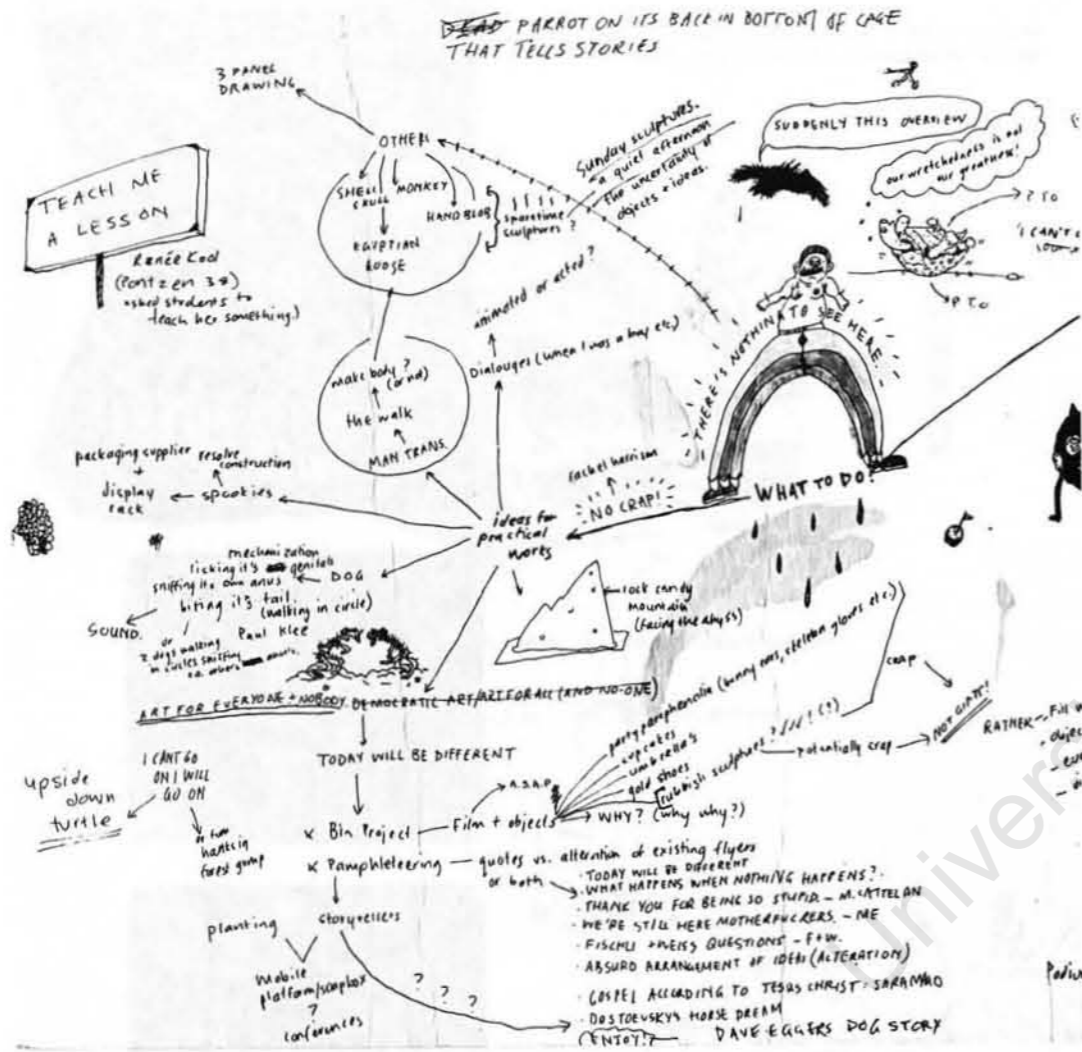 DEAD PARROT ON ITS BACK IN BOTTOM OF CAGE
THAT TELLS STORIES
3 PANEL
DRAWING
OTHER
SHELL
SKULL
MONKEY
HAND BLOB
EGYPTIAN
GOOSE
sparetime
sculptures?
Sunday sculptures.
a quiet afternoon
the uncertainty of
objects + ideas.
SUDDENLY THIS OVERVIEW
our wretchedness is our
our greatness!
? TO
P TO
TEACH ME
A LESSON
Renée Kool
asked students to
teach her something.)
make body?
the walk
MAN TRANS.
animated or acted?
Dialouges (when I was a boy etc.)
THERE IS NOTHING TO SEE HERE.
packaging supplier
+
display
rack
resolve
construction
spookies
rachel harrison
NO CRAP!
WHAT TO DO?
ideas for
practical
works
mechanization
licking it's genitals
sniffing its own anus
DOG
biting it's tail.
(walking in circle)
SOUND.
or
2 dogs walking
in circles sniffing
Paul Klee
rock candy
mountain
(facing the abyss)
ART FOR EVERYONE + NOBODY DEMOCRATIC ART/ART FOR ALL (AND NO-ONE)
TODAY WILL BE DIFFERENT
I CANT GO
ON I WILL
GO ON
upside
down
turtle
forest gump
x Bin Project
Film + objects
A.S.A.P
party paraphenalia (bunny ears, skeleton gloves etc.)
cupcakes
umbrella's
gold shoes
rubbish sculptures?
WHY? (why why?)
crap
potentially crap
RATHER
x Pamphleteering
quotes vs. alteration of existing flyers
or both
· TODAY WILL BE DIFFERENT
· WHAT HAPPENS WHEN NOTHING HAPPENS?
· THANK YOU FOR BEING SO STUPID - M. CATTELAN
· WE'RE STILL HERE MOTHERFUCKERS. - ME
· FISCHLI + WEISS QUESTIONS - F+W.
· ABSURD ARRANGEMENT OF IDEAS (ALTERATION)
· GOSPEL ACCORDING TO JESUS CHRIST: SARAMAGO
· DOSTOEVSKY'S HORSE DREAM
(ENJOY!?
DAVE EGGERS DOG STORY
planting
storytellers
mobile
platform/soapbox
?
conferences
? ? ?
Univers